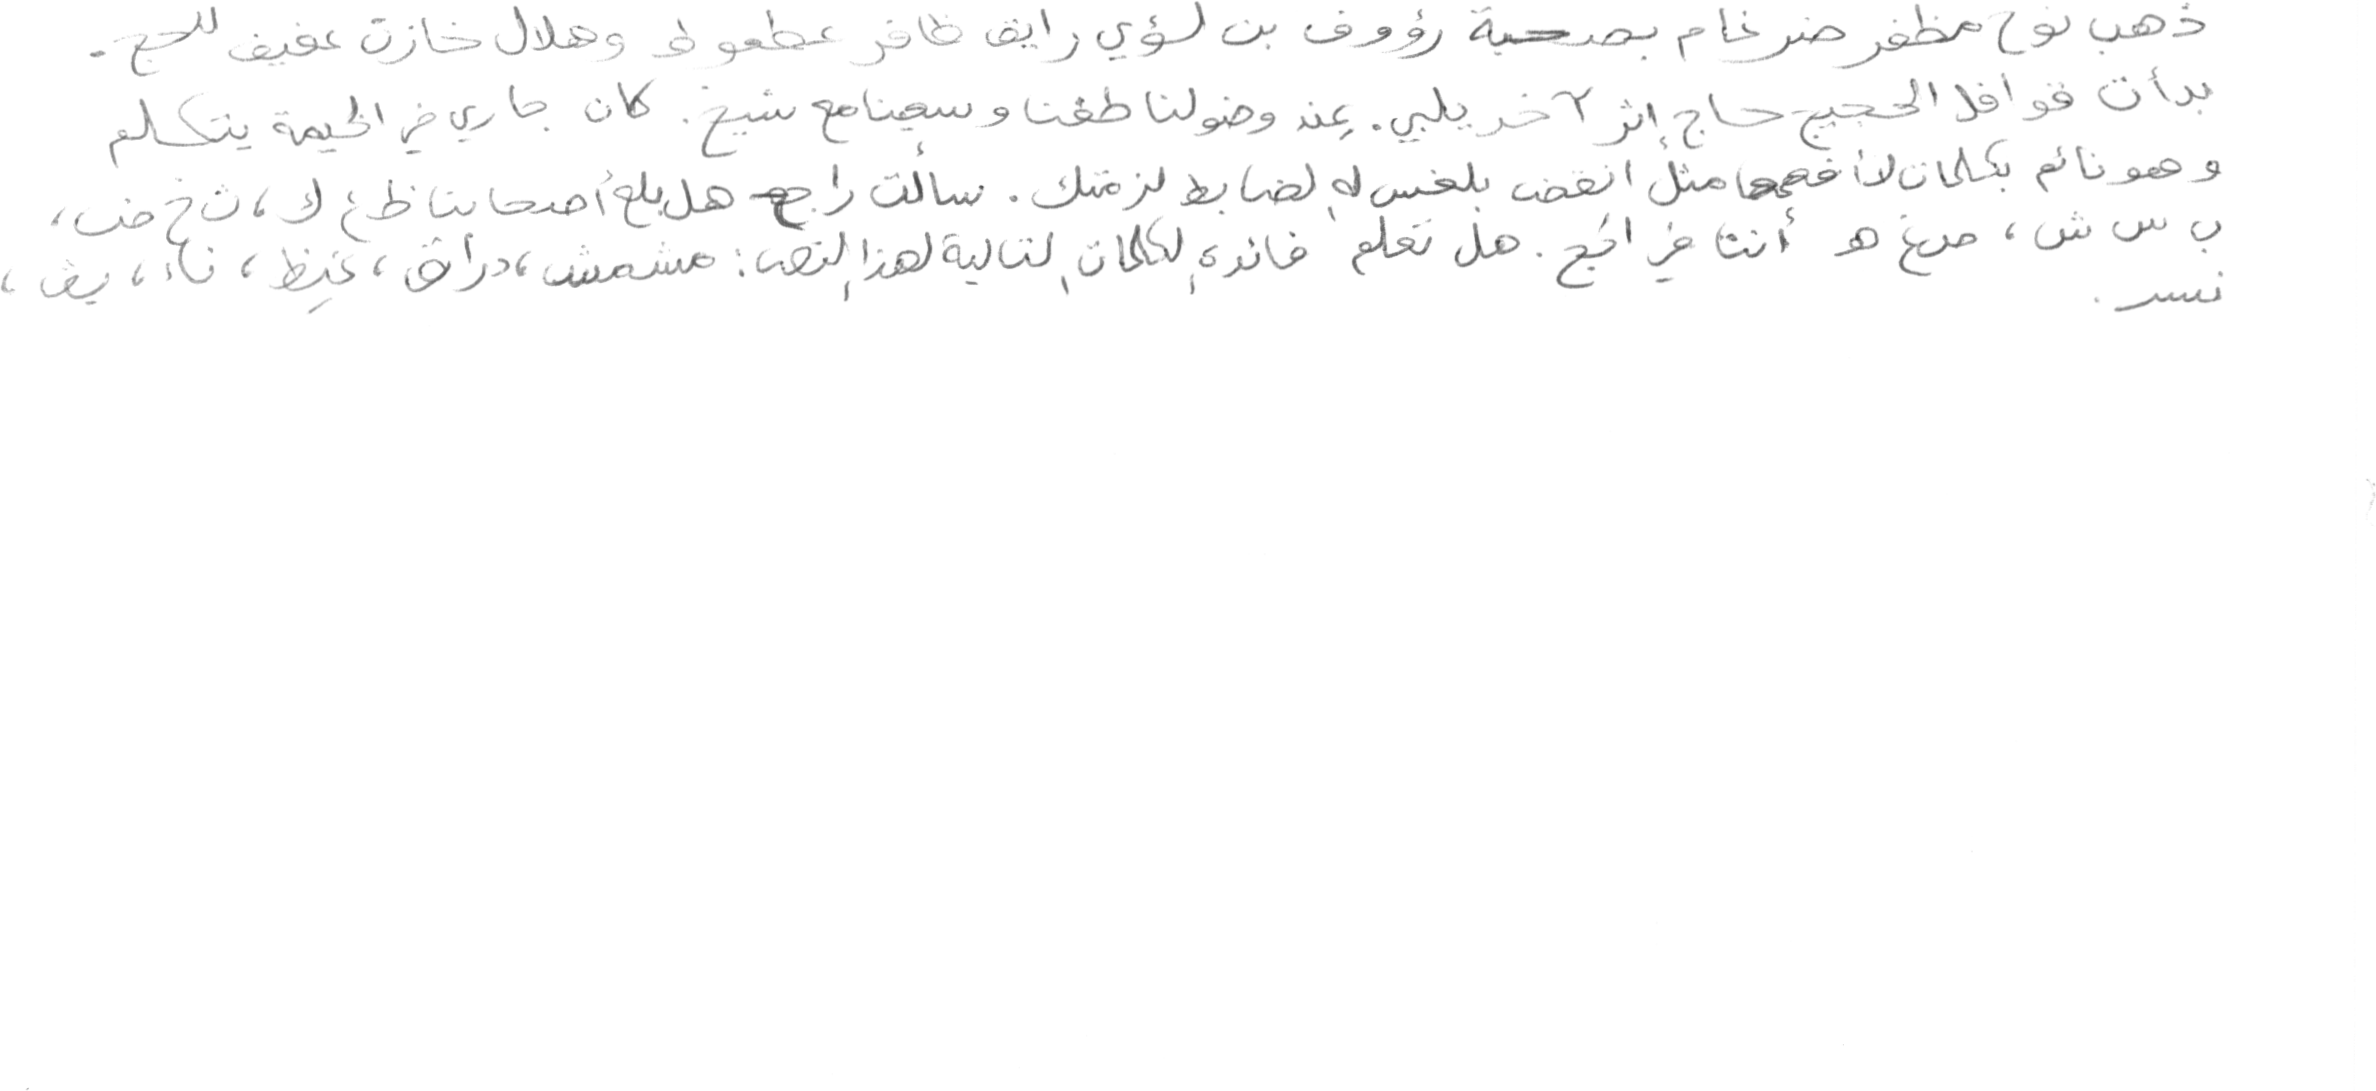 ذهب نوح مظفر ضرغام بصحبة رؤوف بن لؤي رايق ظافر عطعوط وهلال خازن عفيف للحج.
بدأت قوافل الحجيج حاج إثر آخر يلبي. عند وضولنا طفنا وسعينا مع شيخ. كان جاري في الخيمة يتكلم
وهو نائم بكلمات لا أفهمها مثل انقض بلغس له لضابط لزمتك. سألت راجح هل بلع أصحابنا ظ غ ك، ث خ ض،
ب س ش، ص غ ه أنت في الحج. هل تعلم فائدة الكلمات التالية لهذا النص: مشمش، دراق، غيظ، ناء، يق،
نسر.